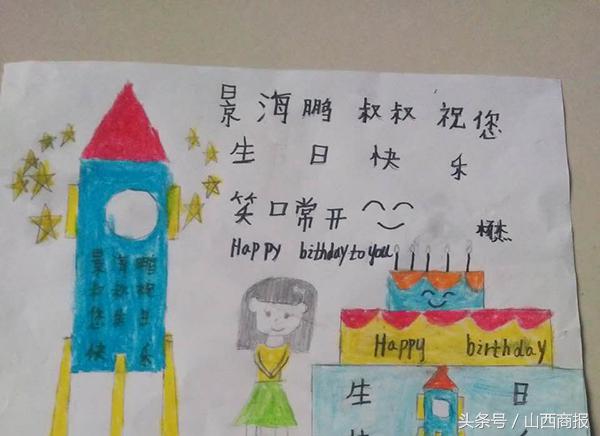 景海鹏叔叔祝您
生日快乐
笑口常开
Happy birthday to you
景海鹏
叔叔祝
您生日
快乐
Happy birthday
生日
快
头条号／山西商报